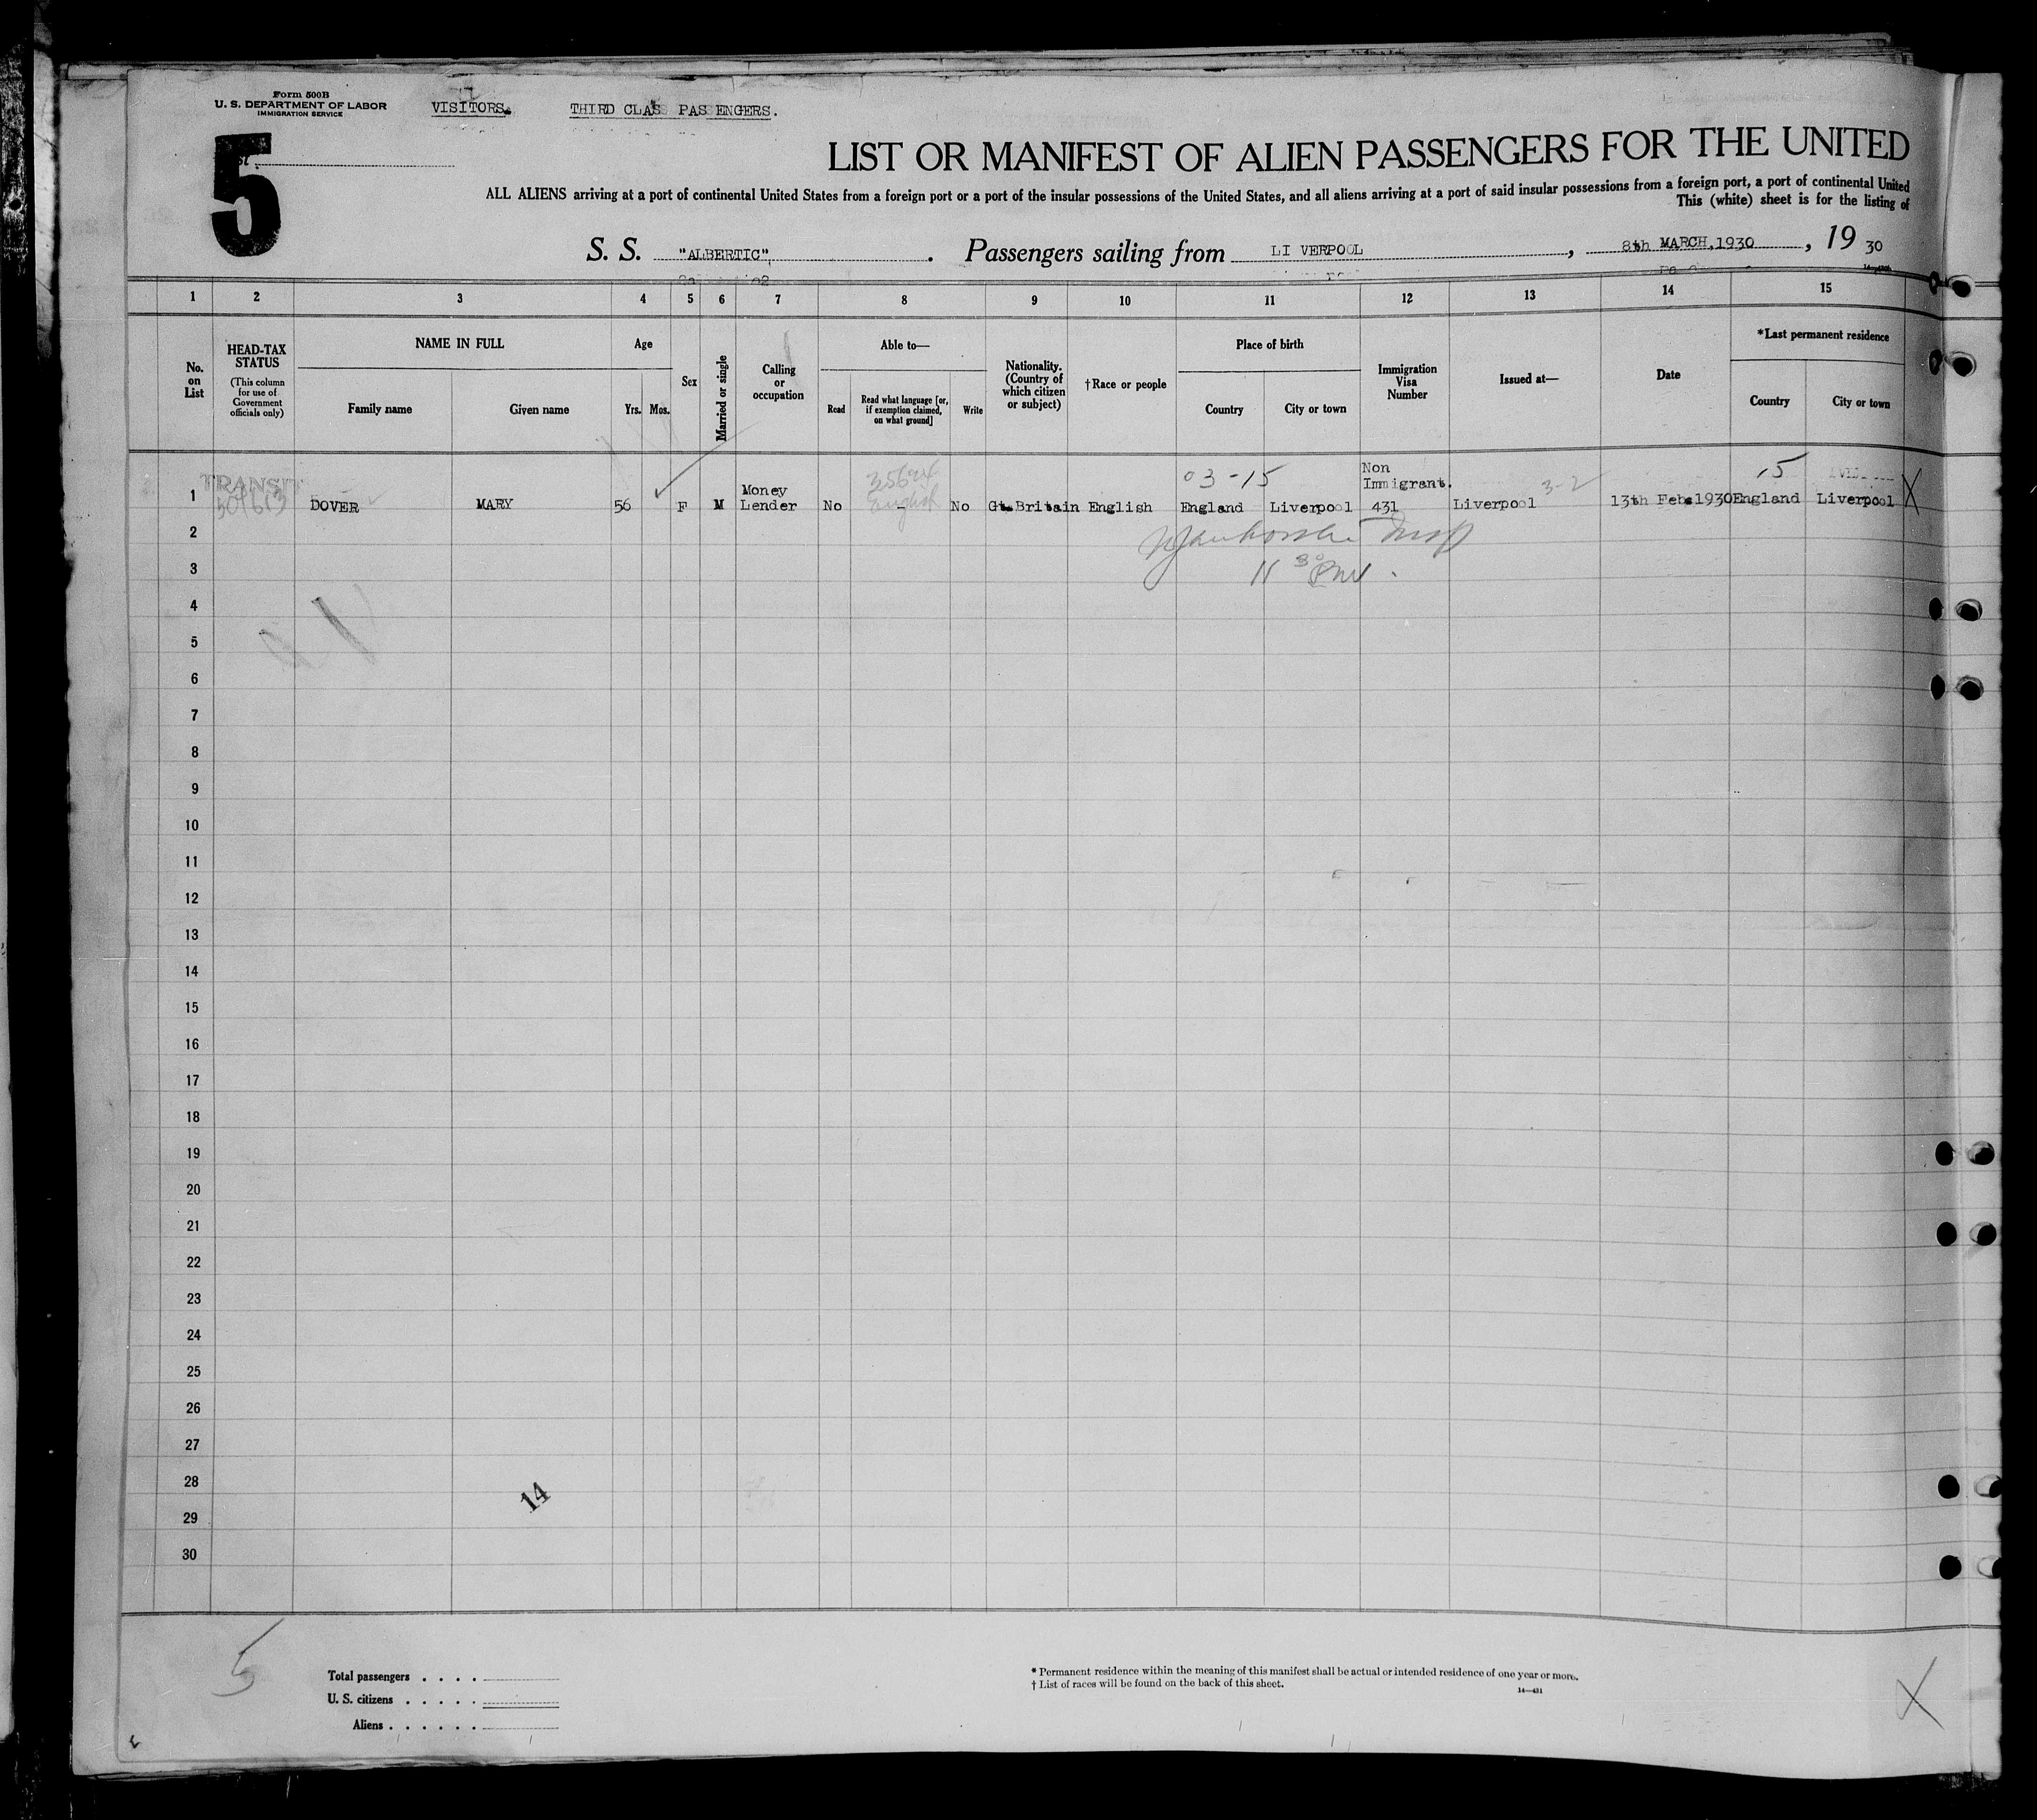 Form 500B
U. S. DEPARTMENT OF LABOR
IMMIGRATION SERVICE
VISITORS. THIRD CLASS PASSENGERS.
5
LIST OR MANIFEST OF ALIEN PASSENGERS FOR THE UNITED
ALL ALIENS arriving at a port of continental United States from a foreign port or a port of the insular possessions of the United States, and all aliens arriving at a port of said insular possessions from a foreign port, a port of continental United
This (white) sheet is for the listing of
S. S. "ALBERTIC". Passengers sailing from LI VERPOOL, 8th MARCH, 1930, 19 30
1 2 3 4 5 6 7 8 9 10 11 12 13 14 15
No. on List
HEAD-TAX STATUS
(This column for use of Government officials only)
NAME IN FULL
Family name
Given name
Age
Yrs. Mos.
Sex
Married or single
Calling or occupation
Able to—
Read
Read what language [or, if exemption claimed, on what ground]
Write
Nationality. (Country of which citizen or subject)
†Race or people
Place of birth
Country
City or town
Immigration Visa Number
Issued at—
Date
*Last permanent residence
Country
City or town
TRANSIT
03-15
3-2
15
1 DOVER MARY 56 F M Money Lender No English - No Gt.Britain English England Liverpool Non Immigrant. 431 Liverpool 13th Feb.1930 England Liverpool X
2
3
4
5
6
7
8
9
10
11
12
13
14
15
16
17
18
19
20
21
22
23
24
25
26
27
28
14
29
30
5
Total passengers . . . .
U. S. citizens . . . . .
Aliens . . . . . .
* Permanent residence within the meaning of this manifest shall be actual or intended residence of one year or more.
† List of races will be found on the back of this sheet.
14—431
X